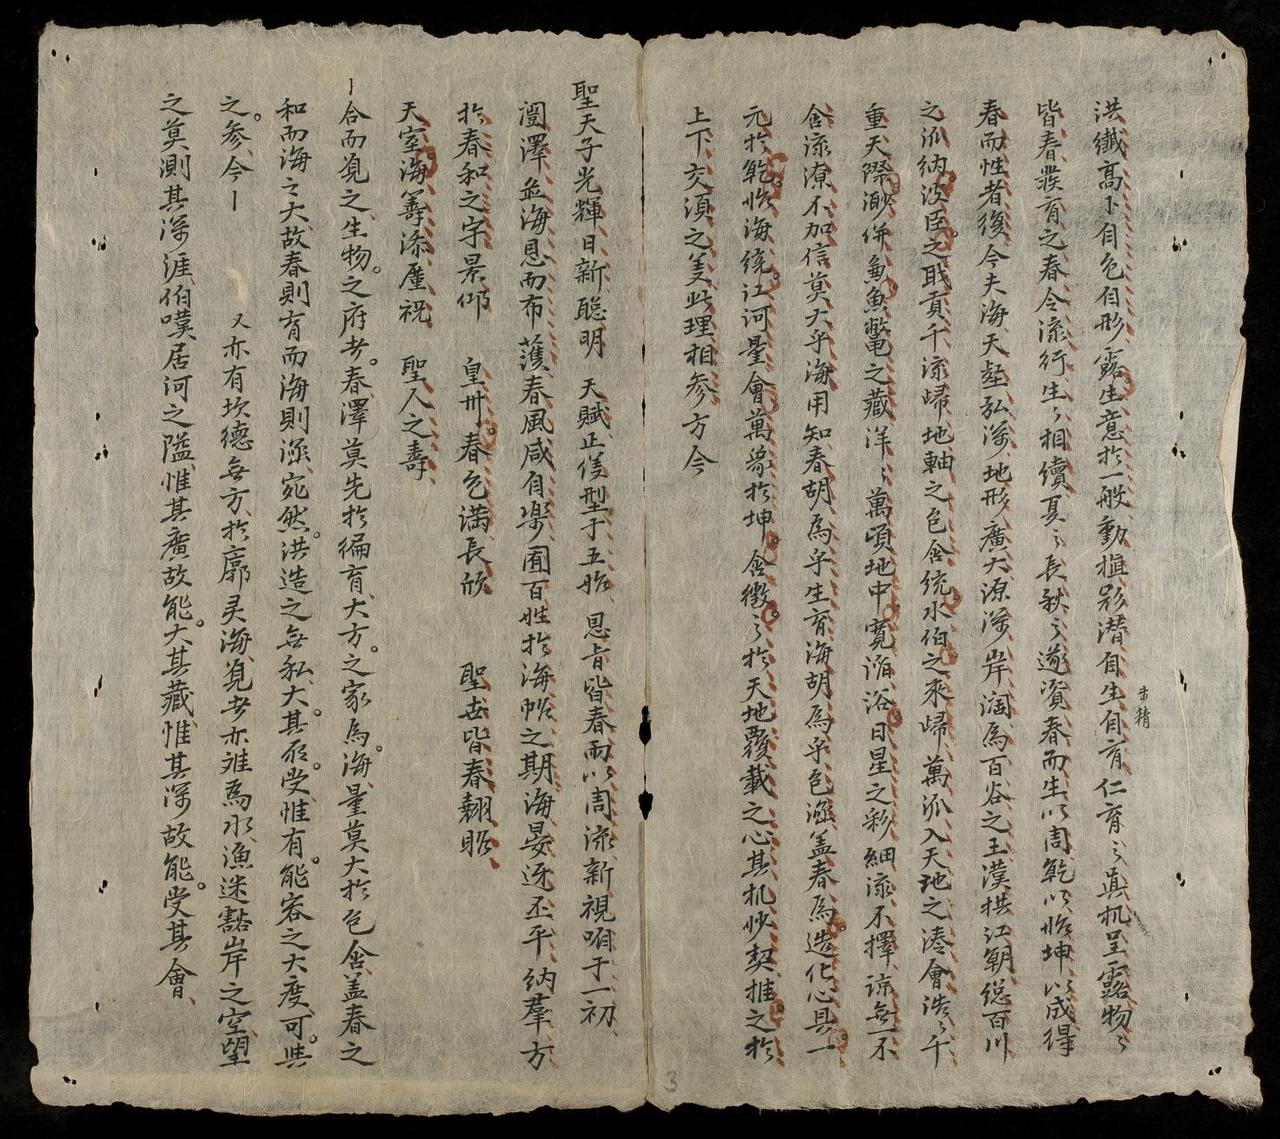 洪纖高下自色自形露生意於一般動植彩潜自生自育仁育〻真机呈露物〻
皆春發育之春令流行生〻相續夏〻長秋〻遂資春而生以周乾以臨坤以成得
春而性者復今夫海天壑弘深地形廣大源深岸濶為百谷之王漢拱江朝総百川
之派納波臣之戢貢千流帰地軸之包含統水伯之來帰萬派入天地之湊會浩〻千
重天際渺併魚鱉黿之藏洋〻萬頃地中寬涵浴日星之彩細流不擇諒無一不
含流潦不加信莫大乎海用知春胡為乎生育海胡為乎包涵盖春為造化心具一
元於乾臨海統江河量會萬象於坤含徵之於天地覆載之心其机妙契推之於
上下交須之美此理相參方今
聖天子光輝日新聦明 天賦正任型于五始 恩旨皆春雨以周流新視哨于一初
闓澤並海恩而布濩春風咸自樂囿百姓於海怅之期海晏迓丕平納羣方
於春和之宇景仰 皇卅春色満長欣 聖世皆春翻昭
天室海籌添屢祝 聖人之壽
合而覓之生物之府者春澤莫先於徧育大方之家為海量莫大於包含盖春之
和而海之大故春則育而海則涵宛然洪造之無私大其所受惟有能容之大度可與
之參今
又亦有坎德無方於廓灵海覓者亦雖為水漁迷豁岸之空望
之莫測其深涯伯嘆居河之隘惟其廣故能大其藏惟其深故能受其會